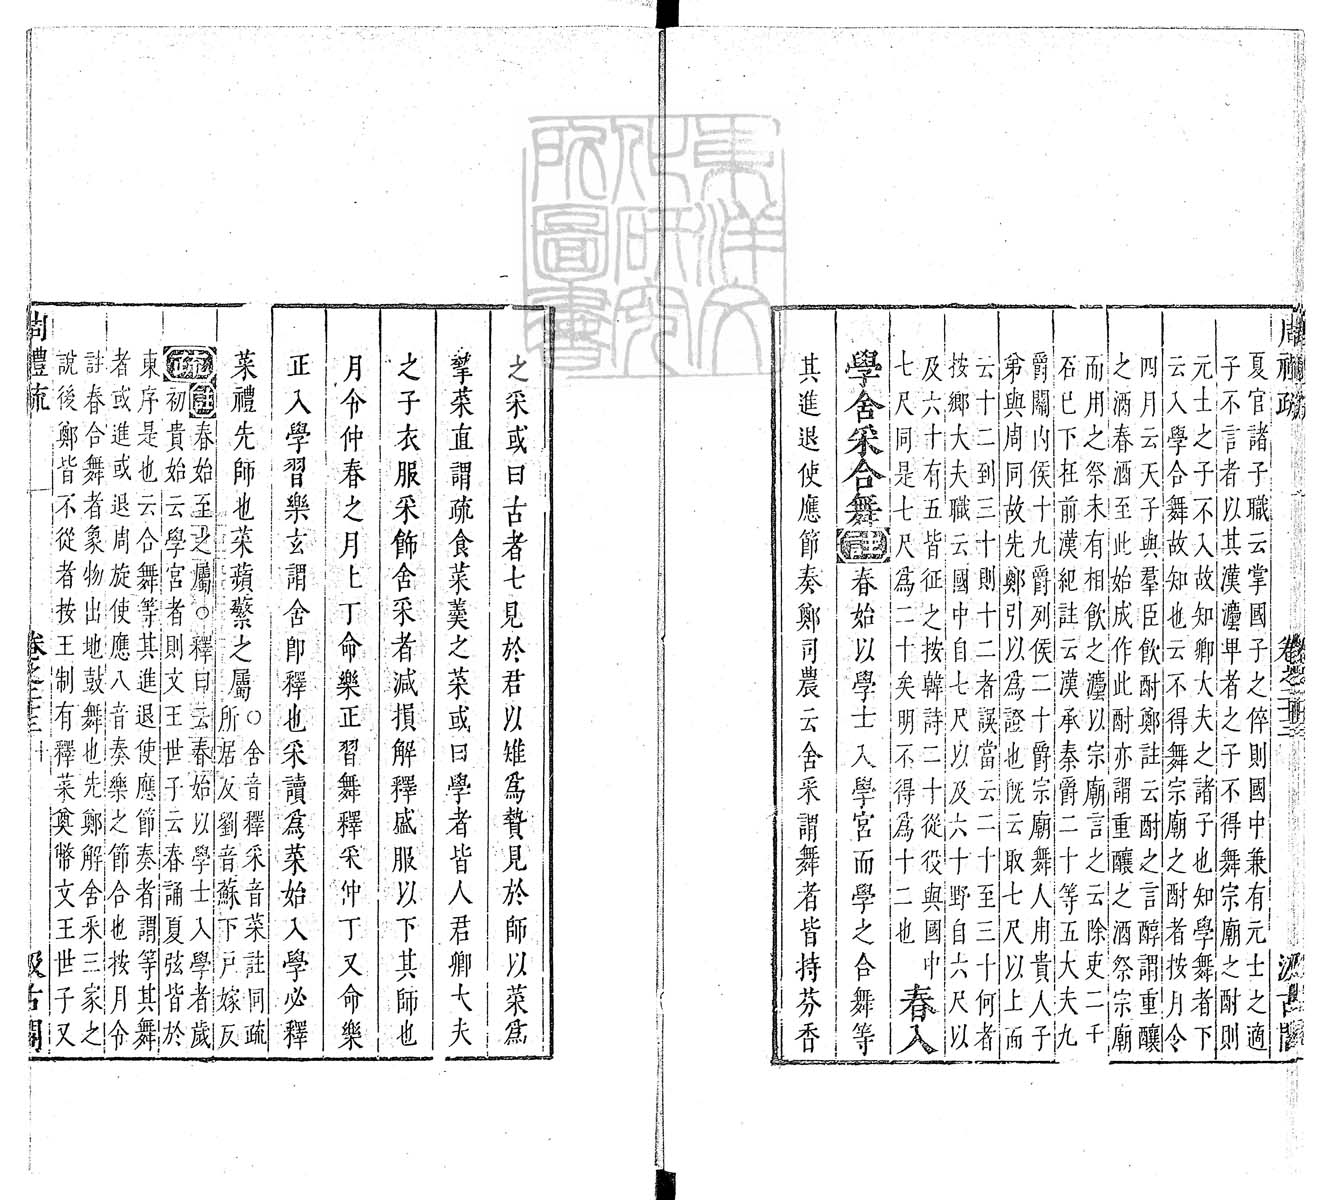 周禮疏 卷之二十三 汲古閣
夏官諸子職云掌國子之倅則國中兼有元士之適
子不言者以其漢灋卑者之子不得舞宗廟之酎則
元士之子不入故知卿大夫之諸子也知學舞者下
云入學合舞故知也云不得舞宗廟之酎者按月令
四月云天子與羣臣飲酎鄭註云酎之言醇謂重釀
之酒春酒至此始成作此酎亦謂重釀之酒祭宗廟
而用之祭未有相飲之灋以宗廟言之云除吏二千
石已下在前漢紀註云漢承秦爵二十等五大夫九
爵關內侯十九爵列侯二十爵宗廟舞人用貴人子
弟與周同故先鄭引以爲證也既云取七尺以上而
云十二到三十則十二者誤當云二十至三十何者
按鄉大夫職云國中自七尺以及六十野自六尺以
及六十有五皆征之按韓詩二十從役與國中
七尺同是七尺爲二十矣明不得爲十二也
春入
學舍采合舞 註 春始以學士入學宮而學之合舞等
其進退使應節奏鄭司農云舍采謂舞者皆持芬香
之采或曰古者士見於君以雉爲贄見於師以菜爲
摯菜直謂疏食菜羹之菜或曰學者皆人君卿大夫
之子衣服采飾舍采者減損解釋盛服以下其師也
月令仲春之月上丁命樂正習舞釋采仲丁又命樂
正入學習樂玄謂舍卽釋也采讀爲菜始入學必釋
菜禮先師也菜蘋蘩之屬
○舍音釋采音菜註同疏
所居反劉音蘇下戸嫁反
疏 註 春始至之屬○釋曰云春始以學士入學者歲
初貴始云學宮者則文王世子云春誦夏弦皆於
東序是也云合舞等其進退使應節奏者謂等其舞
者或進或退周旋使應八音奏樂之節合也按月令
註春合舞者象物出地鼓舞也先鄭解舍采三家之
說後鄭皆不從者按王制有釋菜奠幣文王世子又
周禮疏 卷之二十三 汲古閣
東洋文化研究所圖書